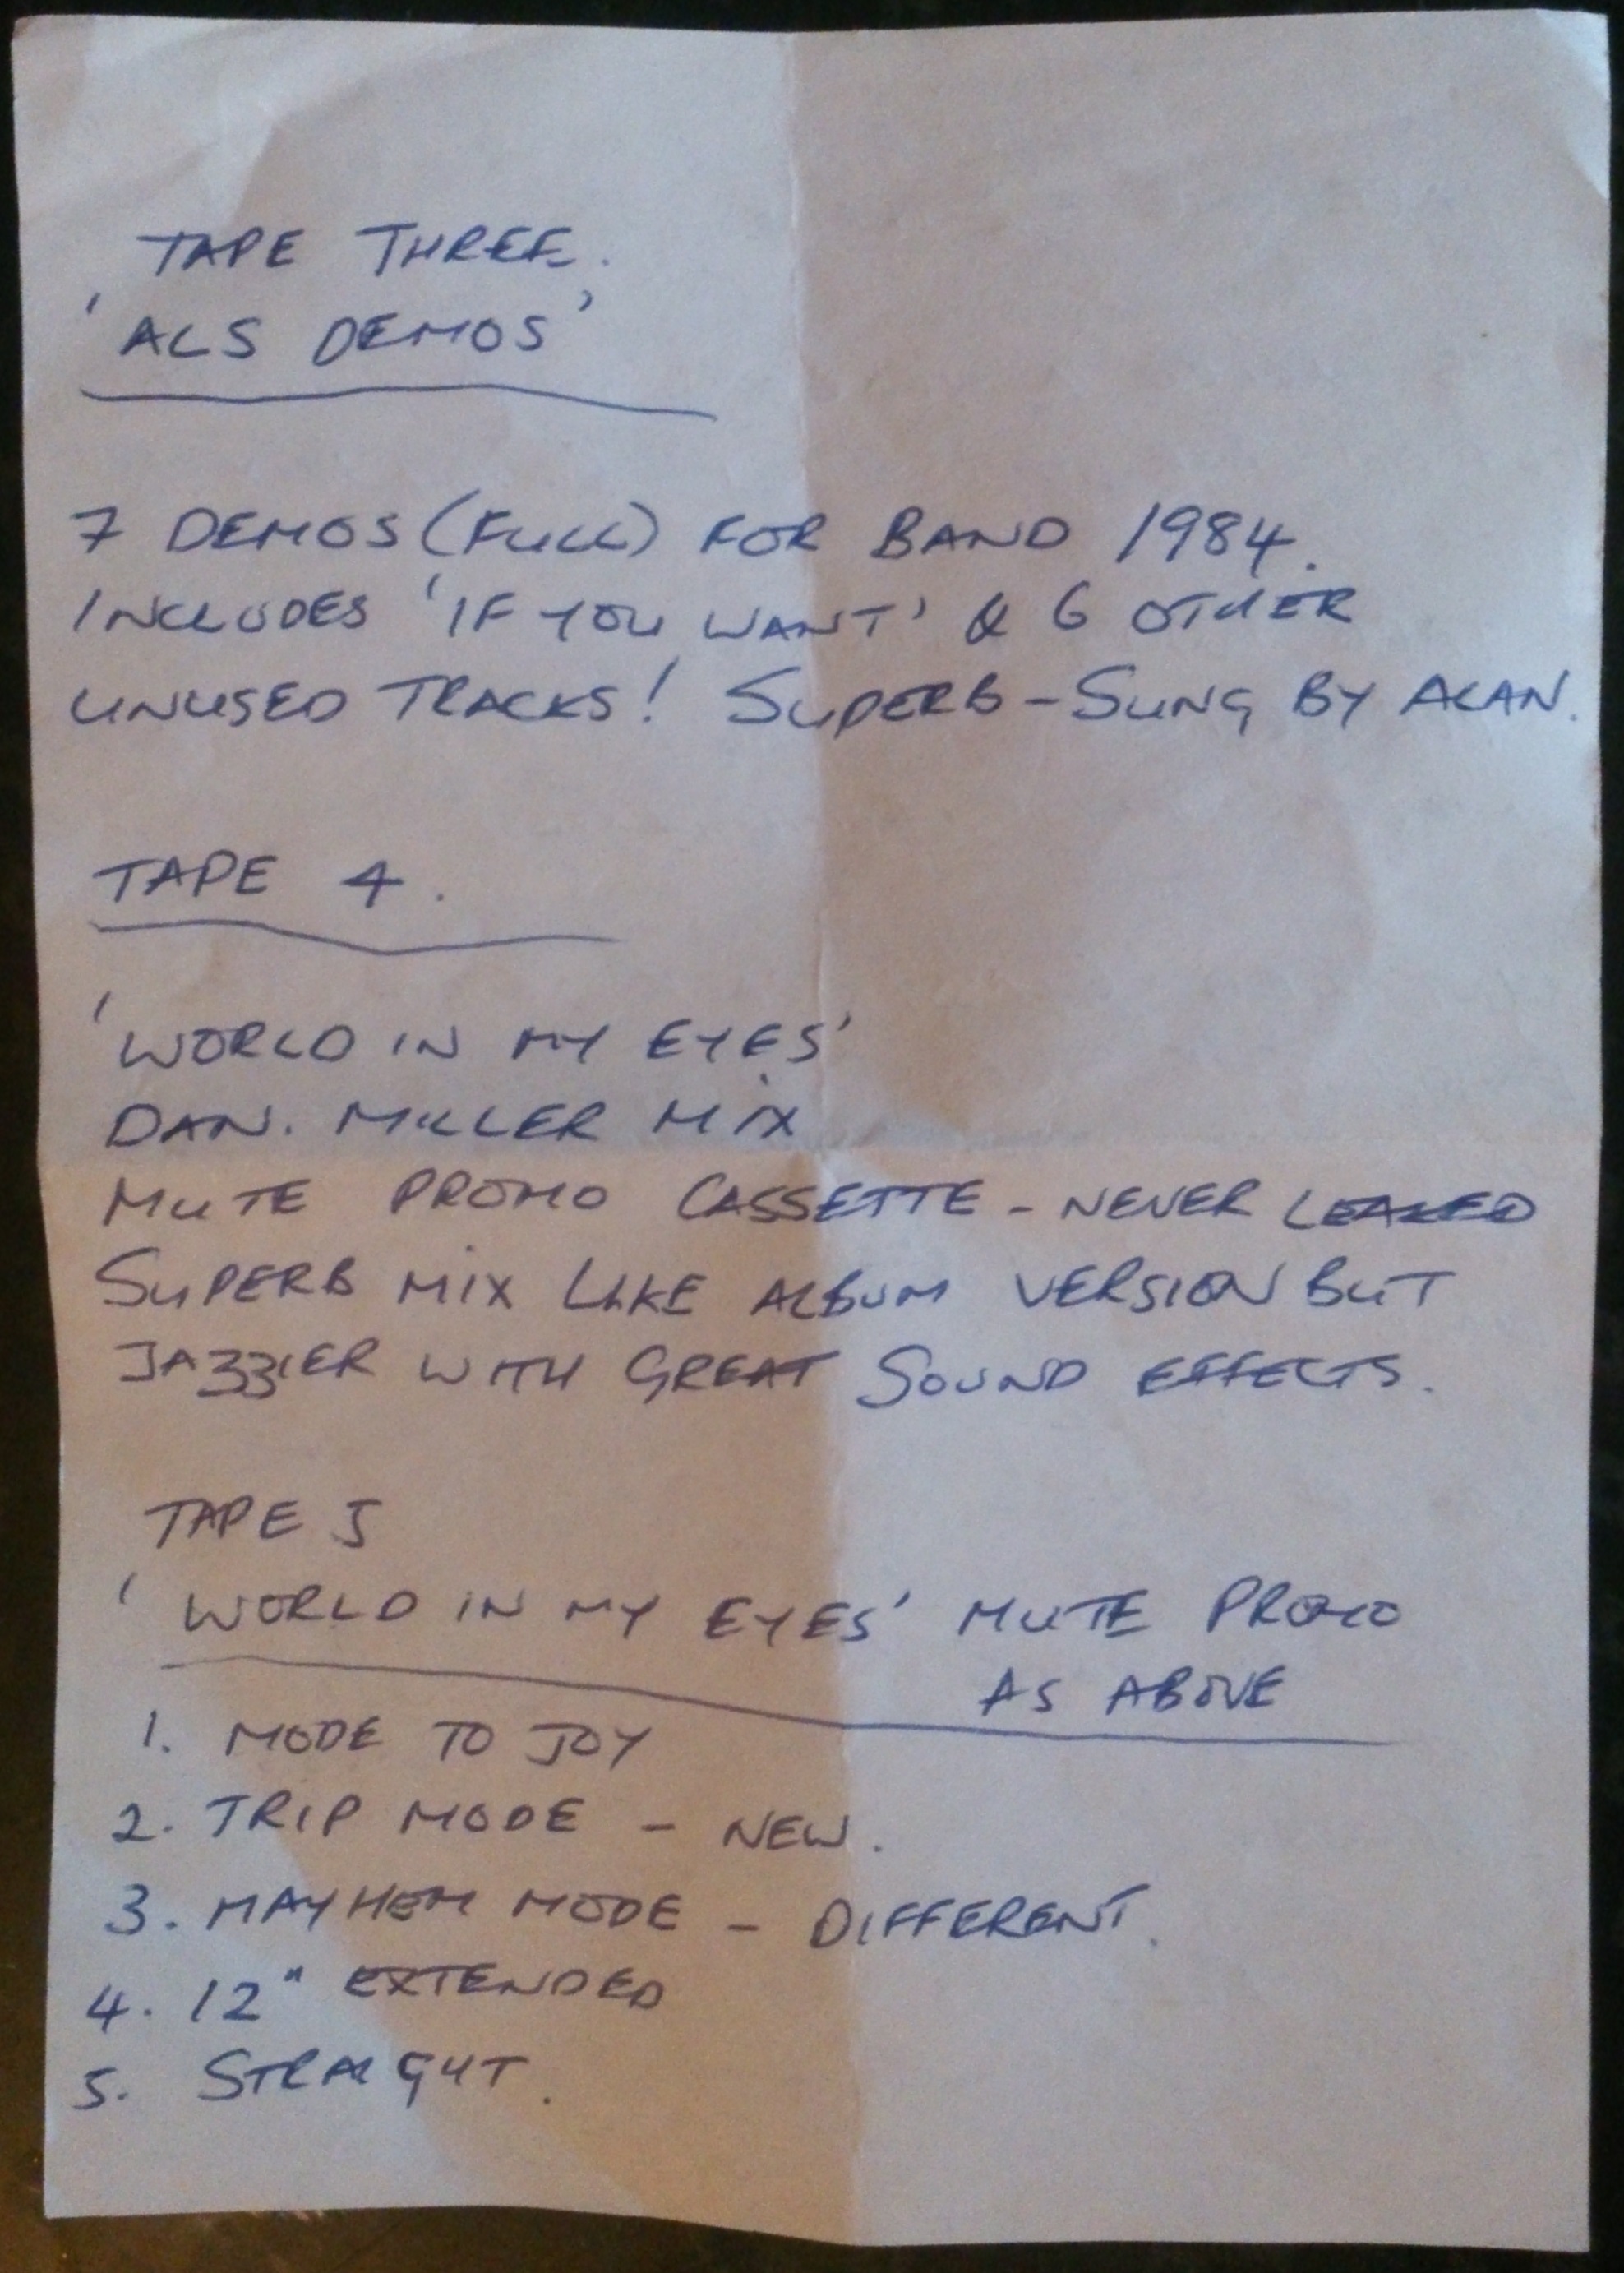 TAPE THREE.
'ALS DEMOS'
7 DEMOS (FULL) FOR BAND 1984.
INCLUDES 'IF YOU WANT' & 6 OTHER
UNUSED TRACKS! SUPERB - SUNG BY ALAN.
TAPE 4.
'WORLD IN MY EYES'
DAN. MILLER MIX
MUTE PROMO CASSETTE - NEVER LEAKED
SUPERB MIX LIKE ALBUM VERSION BUT
JAZZIER WITH GREAT SOUND EFFECTS.
TAPE 5
'WORLD IN MY EYES' MUTE PROMO
AS ABOVE
1. MODE TO JOY
2. TRIP MODE - NEW.
3. MAYHEM MODE - DIFFERENT.
4. 12" EXTENDED
5. STRAIGHT.